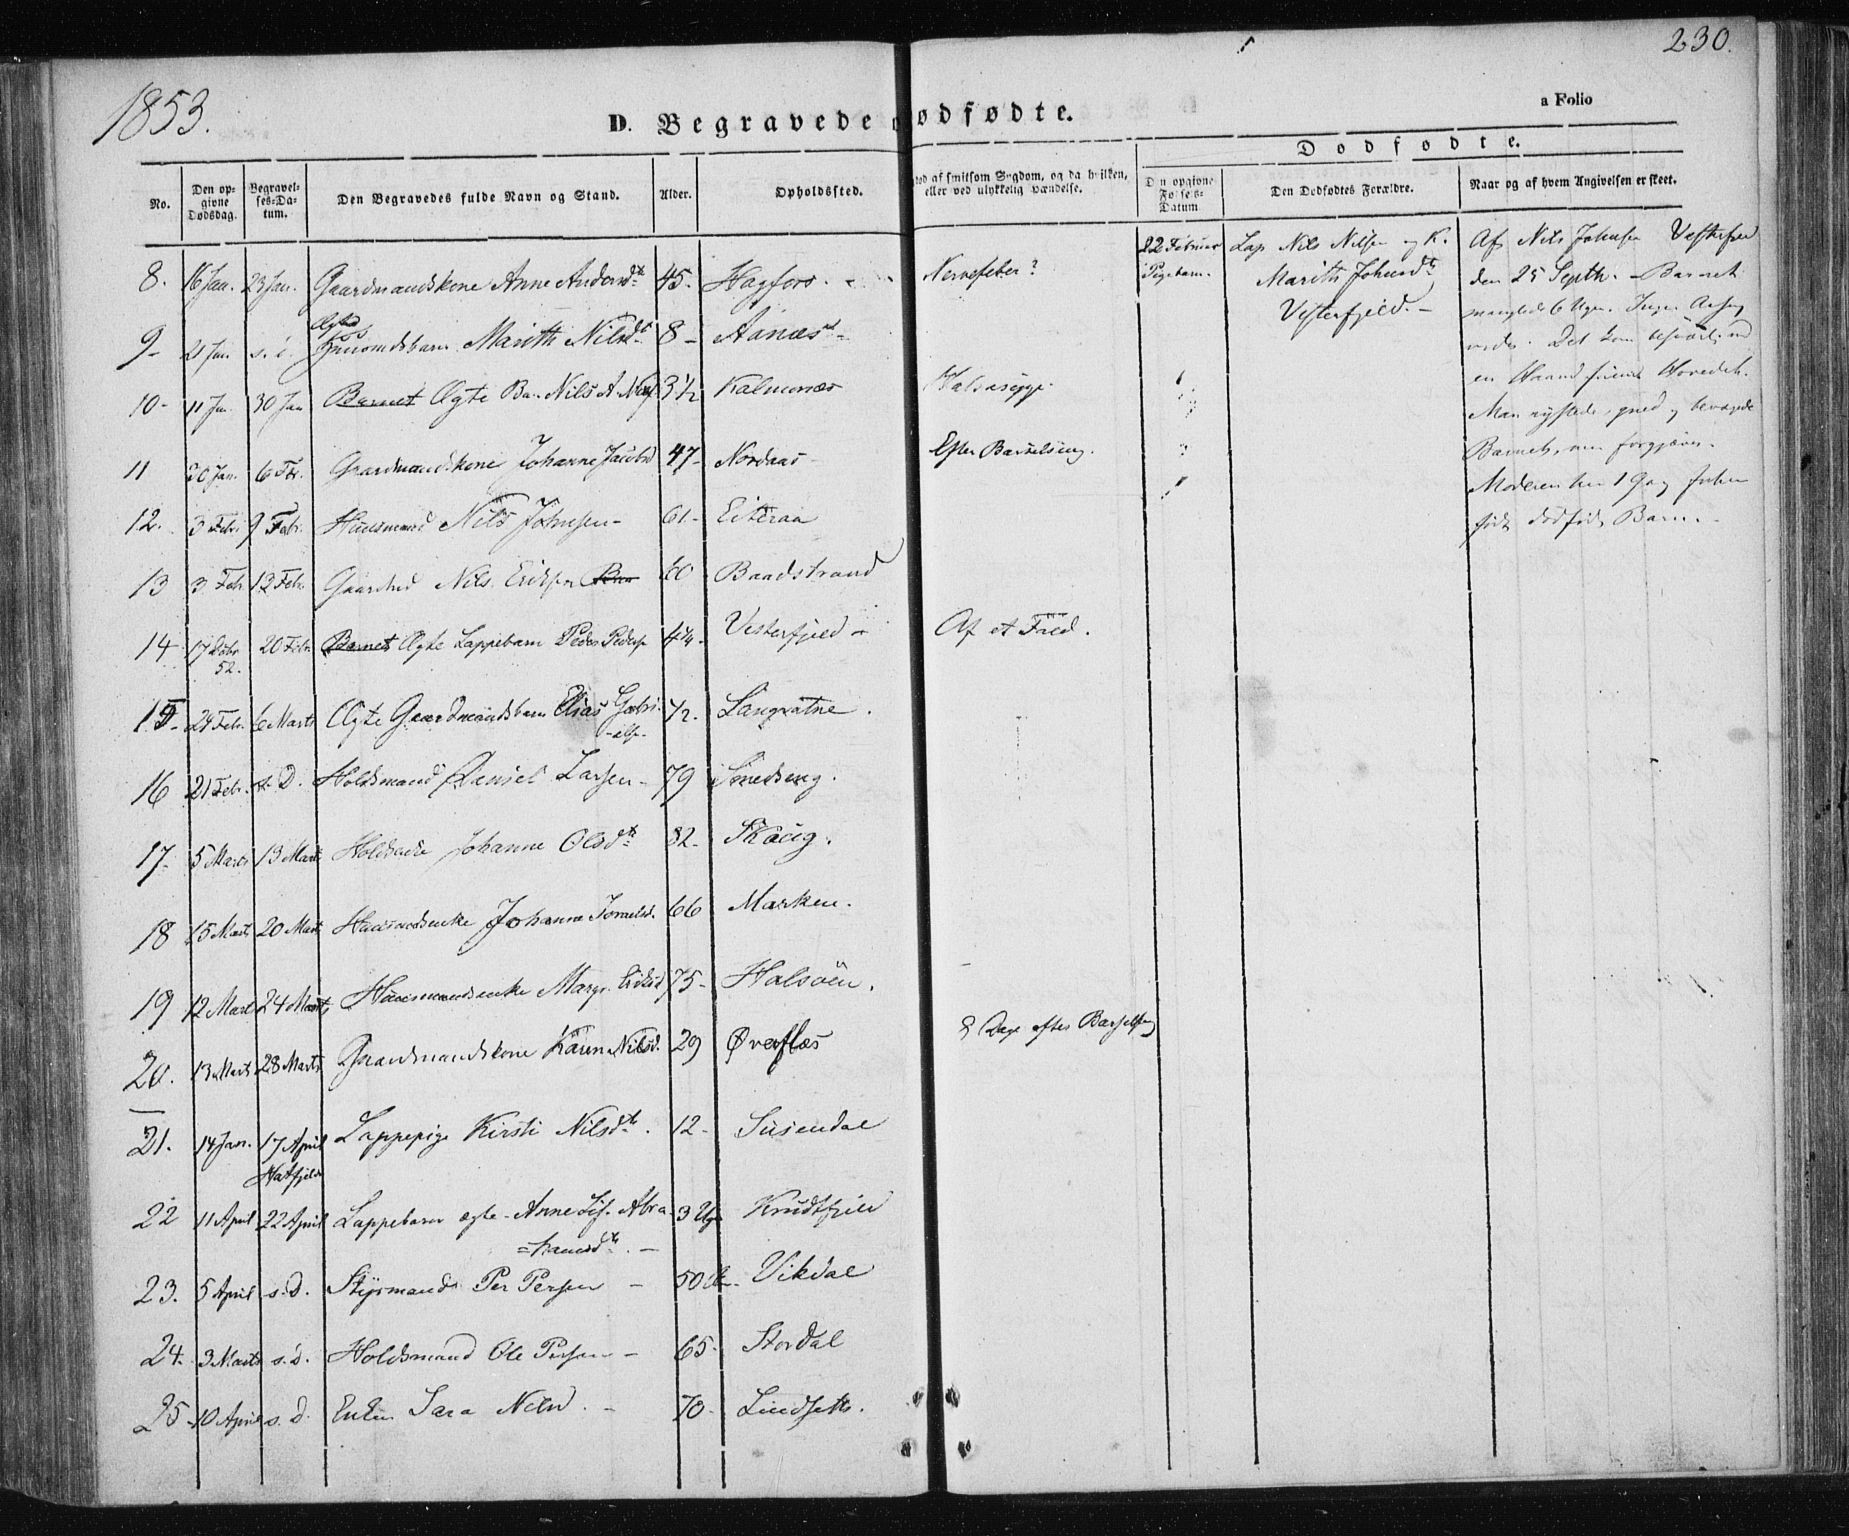 230.
1853.
a Folio
D. Begravede dødfødte.
Dødfødte.
No.
Den opgivne Dødsdag.
Begravelses-Datum.
Den Begravedes fulde Navn og Stand.
Alder.
Opholdssted.
død af smitsom Sygdom, og da hvilken, eller ved ulykkelig Hændelse.
Den opgivne Fødsels-Datum
Den Dødfødtes Forældre.
Naar og af hvem Angivelsen er skeet.
8. 16 Jan. 23 Jan. Gaardmandskone Anne Andersdtr 45. Hagfors. Nervefeber?
9- 21 Jan s. d. Ægte Huusmdsbarn Marith Nilsdtr 8 - Aanæs -
10- 11 Jan 30 Jan Barnet Ægte Nils A 3½ Kalmonæs Halssyge.
11 20 Jan. 6 Febr. Gaardmandskone Johanne Jacobsd 47- Nordaas Efter Barselseng.
12. 3 Febr. 9 Febr. Huusmand Nils Johnsen - 61- Eiteraa
13 3 Febr 13 Febr. Nils Eriksen 60 Baadstrand
14 17 Decbr 52. 20 Febr. Barnet Ægte Lappebarn Peder Peders Vesterfjeld - Af et Fald.
15- 24 Febr. 6 Marts Ægte Gaardmandsbarn Elias Gabrielsn. ½. Langvatne.
16 21 Febr. s. D. Holdsmand Daniel Larsen - 79 Smedseng.
17. 5 Marts 13 Marts Johanne Olsdtr 82- Skoug.
18 15 Marts 20 Marts Huusmdsenke Johanne 66 Marken.
19 12 Marts 24 Marts Huusmandsenke Margr. Eriksd 75- Halsøen.
20. 13 Marts 28 Marts Gaardmandskone Karen Nilsd. 29 Øverflæs 8 Dage efter Barselseng
21. 14 Jan. 17 April Hatfjeld Lappepige Kirsti Nilsdtr. 12- Susendal
22 11 April 22 April Lappebarn ægte - Anne Lis. Abrahamsdtr. - 3 Uger Knudtfjeld
23. 5 April s. D. Styrmand Per Persen - 50 Vikdal
24. 3 Marts s. d. Holdsmand Ole Persen - 65- Stordal
25- 10 April s. d. Enken Sara Nilsd. - 70- Lindseth.
22 Februar
Pigebarn.
Lap Nils Nilsen og K.
Marith Johnsdtr
Vesterfjeld. -
Af Nils Johnsen Vesterfjeld
den 25 Septbr. - Barnet
manglede 6 Uger. Ingen
Det kom
en Haand foruden Hovedet.
Man rystede, gned og bevægede
Barnet, men forgjæves.
Moderen har 1 Gang forhen
født dødfødt Barn. -